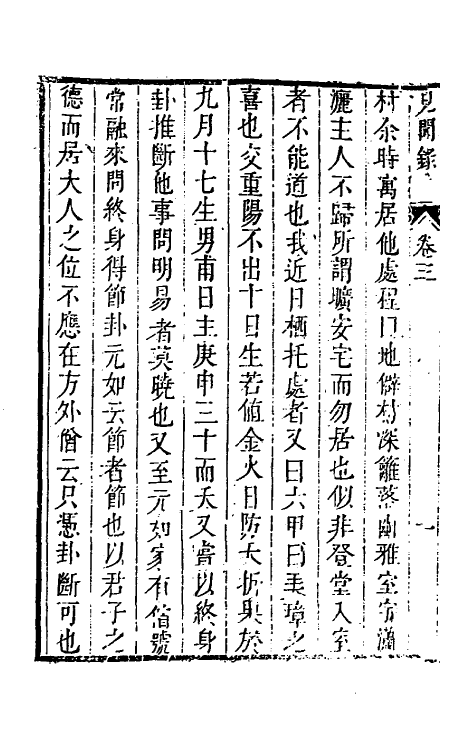 見聞錄
卷三
一
村余時寓居他處程曰地僻林深籬落幽雅室宇瀟
灑主人不歸所謂曠安宅而勿居也似非登堂入室
者不能道也我近日栖托處者又曰六甲曰弄璋之
喜也交重陽不出十日生若値金火日防夭折果於
九月十七生男甫日主庚申三十而夭又嘗以終身
卦推斷他事問明易者莫曉也又至元如家有僧號
常融來問終身得節卦元如云節者節也以君子之
德而居大人之位不應在方外僧云只憑卦斷可也